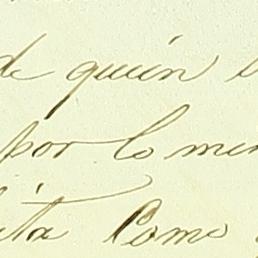 de quién
por lo men
ita Como